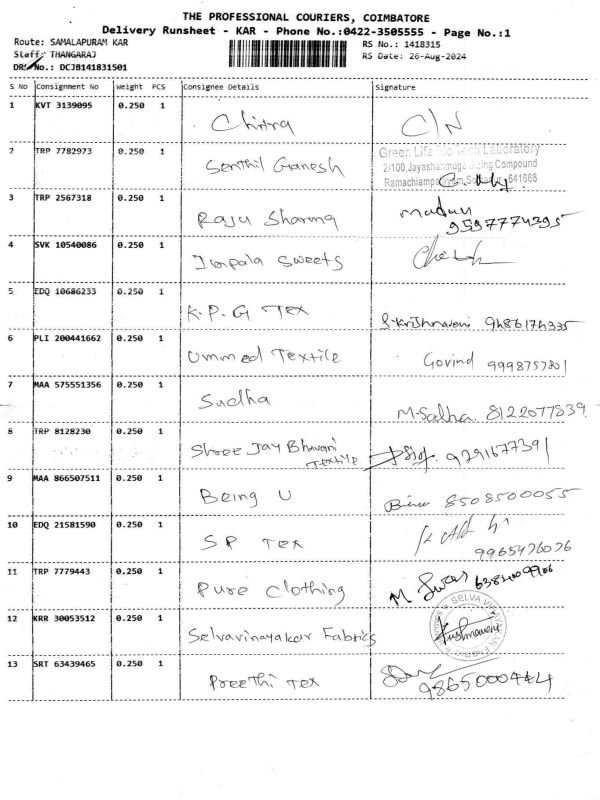 THE PROFESSIONAL COURIERS, COIMBATORE
Delivery Runsheet - KAR - Phone No.:0422-3505555 - Page No.:1
Route: SAMALAPURAM KAR RS No.: 1418315
Staff: THANGARAJ RS Date: 26-Aug-2024
DRS No.: DCJB141831501
S No Consignment No Weight PCS Consignee Details Signature
1 KVT 3139095 0.250 1
Chitra C/N
2 TRP 7782973 0.250 1 Green Life Bio Tech Laboratory
Senthil Ganesh 2/100, Jayashanmuga Sizing Compound
Ramachiampalayam, 641668
3 TRP 2567318 0.250 1
Raju Sharma 9597774395
4 SVK 10540086 0.250 1
Impala Sweets
5 EDQ 10686233 0.250 1
K.P.G Tex
6 PLI 200441662 0.250 1
Ummed Textile Govind 9998757801
7 MAA 575551356 0.250 1
Sudha 8122077839
8 TRP 8128230 0.250 1
Shree Jay Bhavani 9791677391
Textile
9 MAA 866507511 0.250 1
Being U 8508500055
10 EDQ 21581590 0.250 1
SP Tex 9965476076
11 TRP 7779443 0.250 1
Pure Clothing
12 KRR 30053512 0.250 1 SELVA
Selvavinayakar Fabrics
13 SRT 63439465 0.250 1
Preethi Tex 9865000444